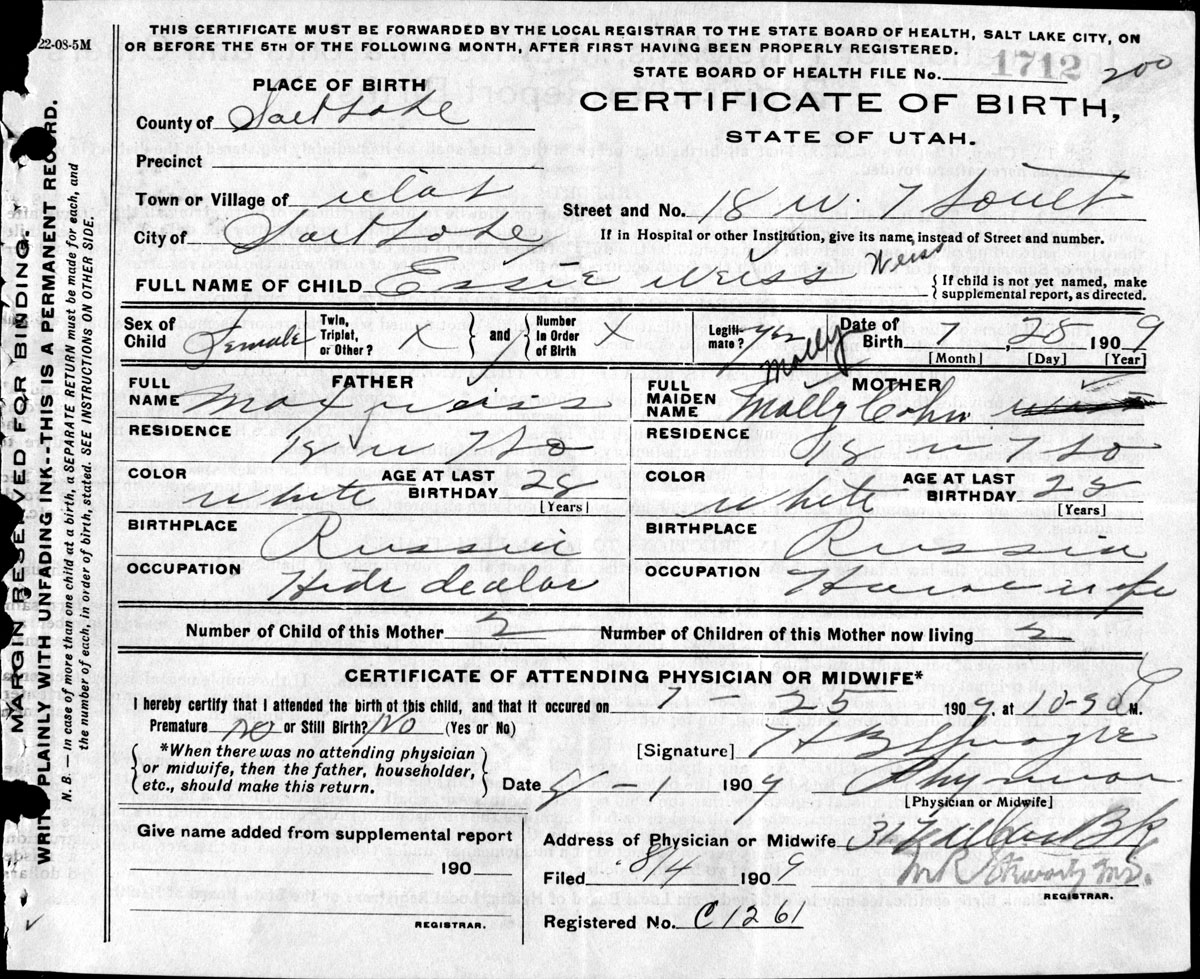 22-08-5M
THIS CERTIFICATE MUST BE FORWARDED BY THE LOCAL REGISTRAR TO THE STATE BOARD OF HEALTH, SALT LAKE CITY, ON
OR BEFORE THE 5TH OF THE FOLLOWING MONTH, AFTER FIRST HAVING BEEN PROPERLY REGISTERED.
STATE BOARD OF HEALTH FILE No. 1712 200
PLACE OF BIRTH
CERTIFICATE OF BIRTH,
STATE OF UTAH.
County of Salt Lake
Precinct
Town or Village of Utah
Street and No. 18 W. 7 South
City of Salt Lake
If in Hospital or other Institution, give its name, instead of Street and number.
Weiss
FULL NAME OF CHILD Essie Weiss
{ If child is not yet named, make
supplemental report, as directed.
Sex of Child Female
Twin, Triplet, or Other? X } and { Number In Order of Birth X
Legitimate? yes
Date of Birth 7, 25 1909
[Month] [Day] [Year]
FATHER
FULL NAME Max Weiss
RESIDENCE 18 W 7 So
COLOR White AGE AT LAST BIRTHDAY 28
[Years]
BIRTHPLACE Russia
OCCUPATION Hide dealer
Molly
MOTHER
FULL MAIDEN NAME Molly Cohn
RESIDENCE 18 W 7 So
COLOR White AGE AT LAST BIRTHDAY 25
[Years]
BIRTHPLACE Russia
OCCUPATION Housewife
Number of Child of this Mother 2 Number of Children of this Mother now living 2
CERTIFICATE OF ATTENDING PHYSICIAN OR MIDWIFE*
I hereby certify that I attended the birth of this child, and that it occured on 7 - 25 1909, at 10-30 M.
Premature No or Still Birth? No (Yes or No)
{ *When there was no attending physician
or midwife, then the father, householder,
etc., should make this return. }
[Signature] H B Sprague
Date 8-1 1909 Physician
[Physician or Midwife]
Give name added from supplemental report
190
REGISTRAR.
Address of Physician or Midwife Bk
Filed 8/4 1909 M R Stewart MD.
REGISTRAR.
Registered No. C1261
MARGIN RESERVED FOR BINDING
WRITE PLAINLY WITH UNFADING INK--THIS IS A PERMANENT RECORD.
N. B. — In case of more than one child at a birth, a SEPARATE RETURN must be made for each, and
the number of each, in order of birth, stated. SEE INSTRUCTIONS ON OTHER SIDE.